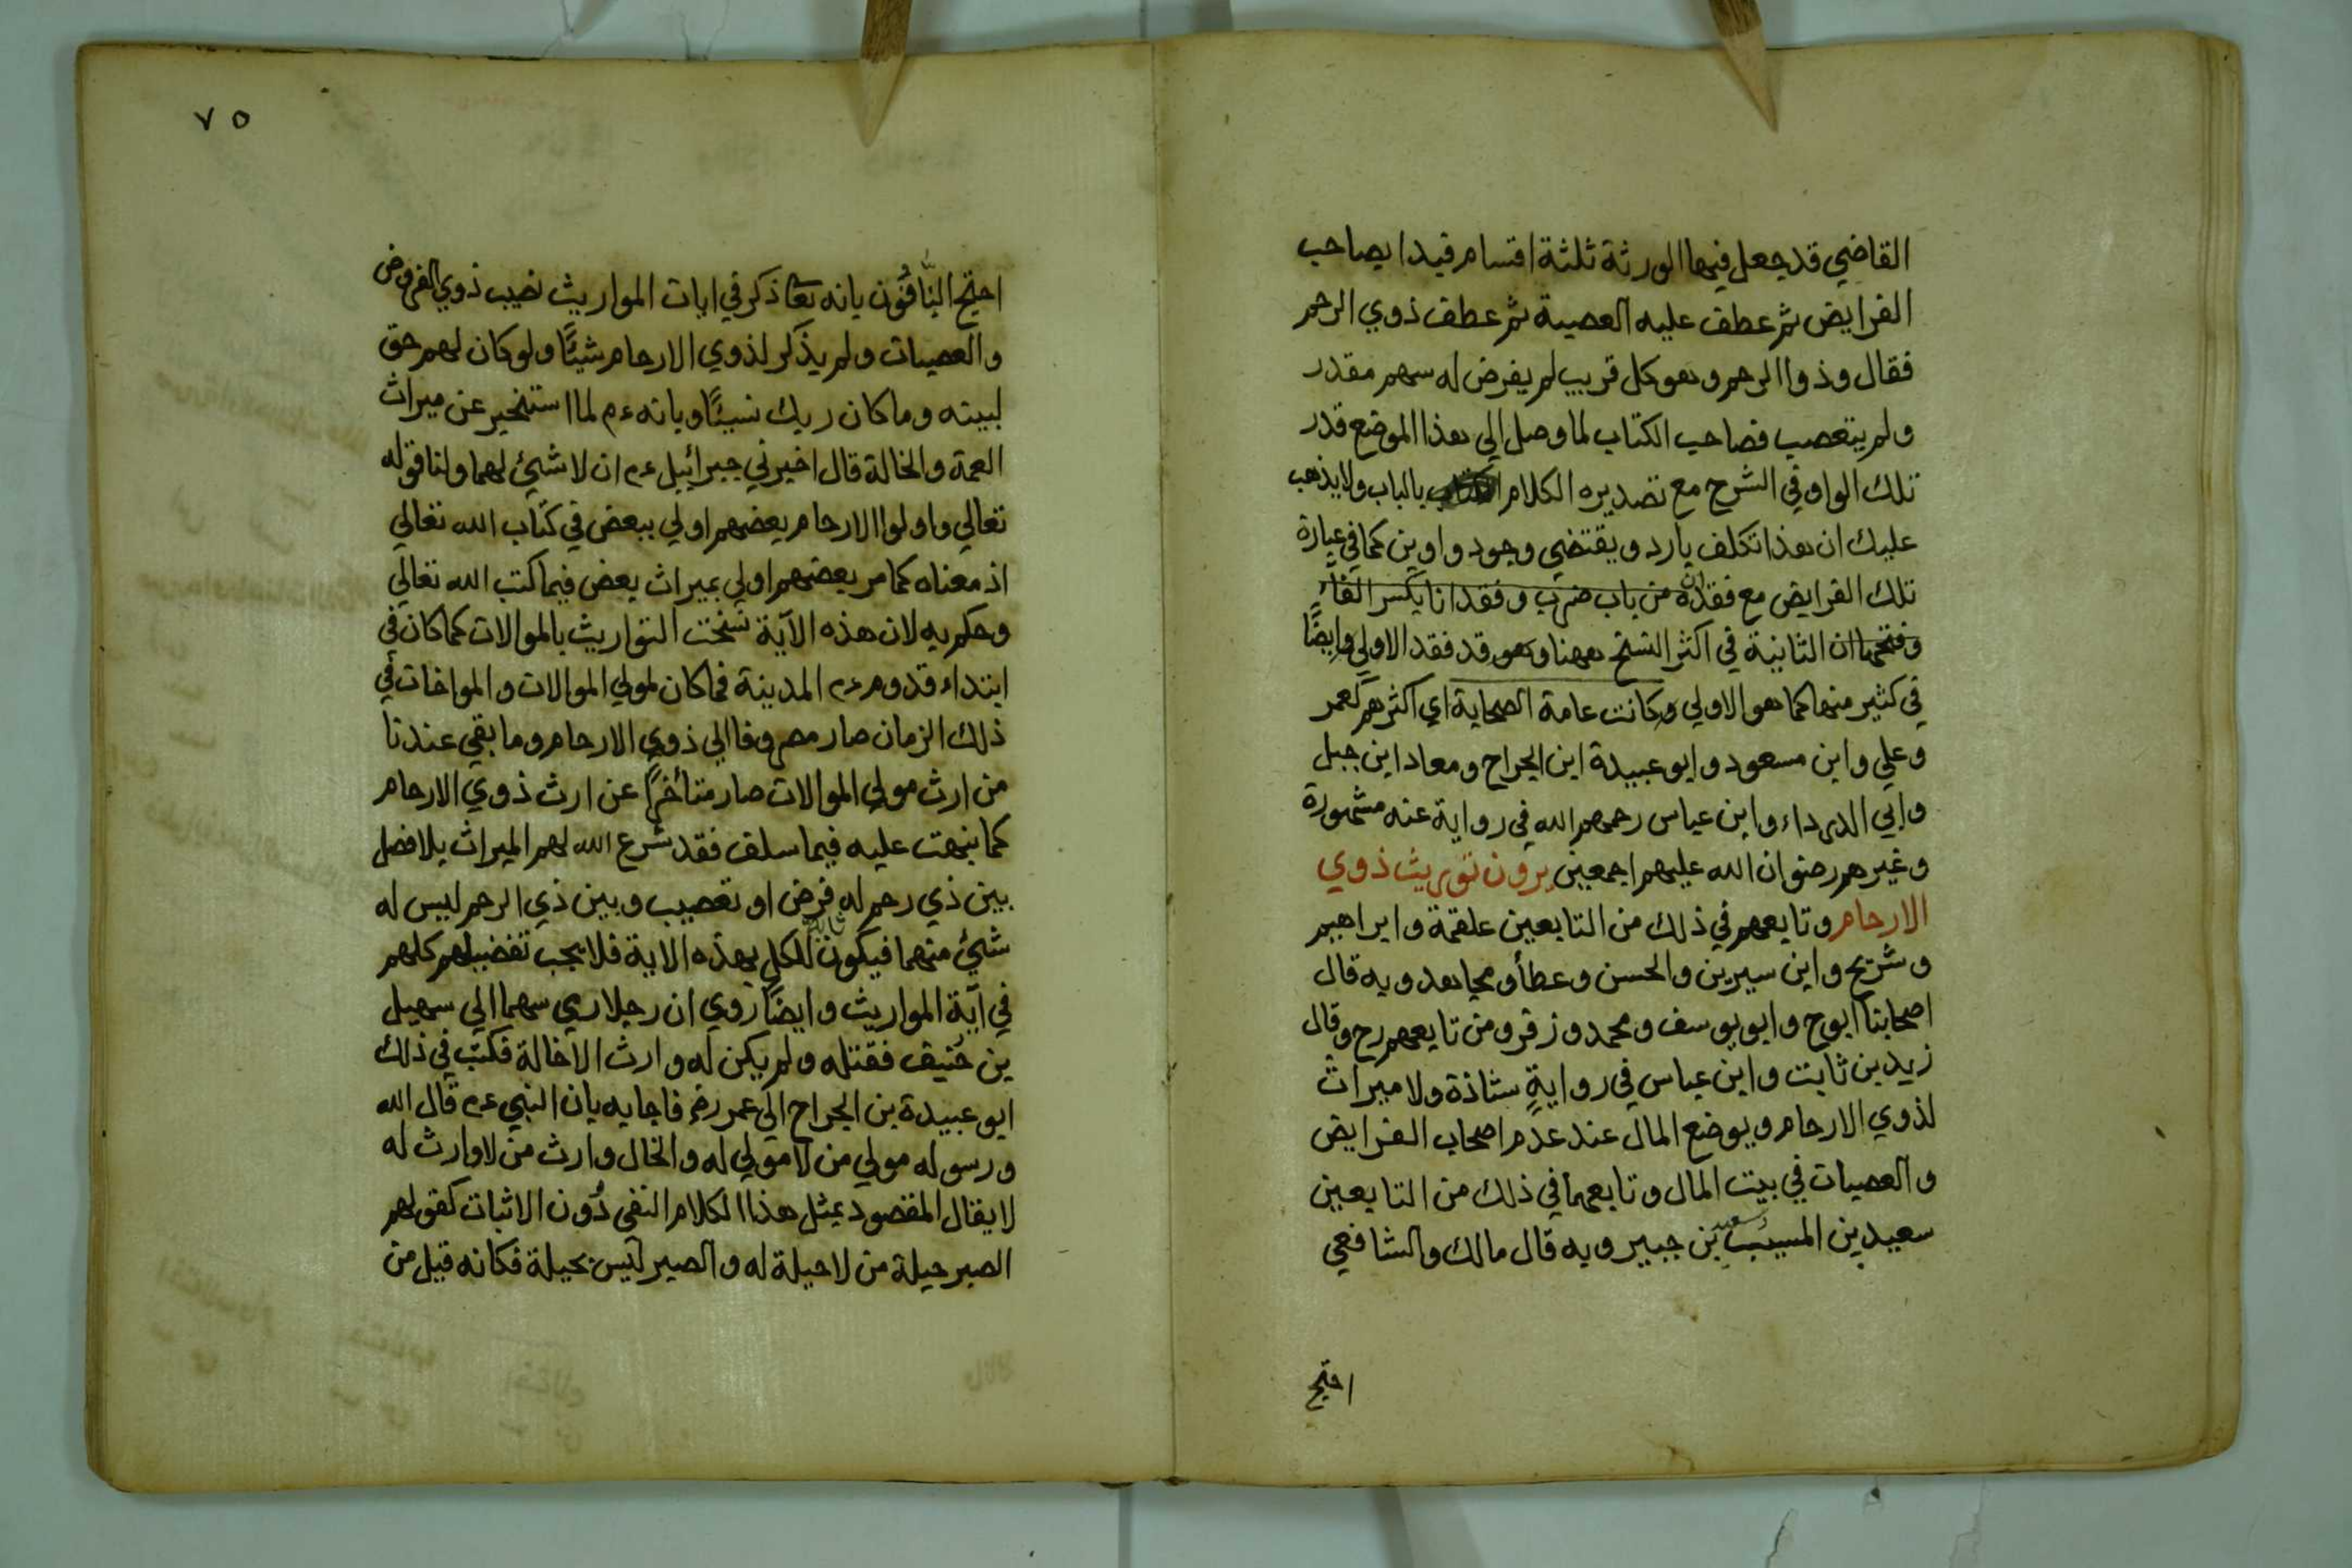 القاضي قد جعل فيها الورثة ثلثة اقسام فبدا بصاحب
الفرايض ثم عطف عليه العصبة ثم عطف ذوي الرحم
فقال وذوا الرحم وهو كل قريب لم يفرض له سهم مقدر
ولم يتعصب فصاحب الكتاب لما وصل الي هذا الموضع قدر
تلك الواو في الشرح مع تصديره الكلام بالباب ولا يذهب
عليك ان هذا تكلف بارد ويقتضي وجود واوين كما في عبارة
تلك الفرايض مع فقدان من باب ضرب وفقدانا بكسر الفاء
وفتحها ان الثانية في اكثر النسخ ههنا وهو قد فقد الاولي وايضًا
في كثير منها كما هو الاولي وكانت عامة الصحابة اي اكثرهم كعمر
وعلي وابن مسعود وابو عبيدة ابن الجراح ومعاد ابن جبل
وابي الدرداء وابن عباس رحمهم الله في رواية عنه مشهورة
وغيرهم رضوان الله عليهم اجمعين يرون توريث ذوي
الارحام وتابعهم في ذلك من التابعين علقمة وابراهيم
وشريح وابن سيرين والحسن وعطأ ومجاهد وبه قال
اصحابنا ابوح وابو يوسف ومحمد وزفر ومن تابعهم رح وقال
زيد بن ثابت وابن عباس في روايةٍ شاذة ولا ميراث
لذوي الارحام ويوضع المال عند عدم اصحاب الفرايض
والعصبات في بيت المال وتابعهما في ذلك من التابعين
سعيد بن المسيب سعيد بن جبير وبه قال مالك والشافعي
احتج
٧٥
احتج النَّافُون بانه تعا ذكر في ايات المواريث نصيب ذوي الفروض
والعصبات ولم يذكر لذوي الارحام شيئًا ولو كان لهم حق
لبينه وما كان ربك نسيئًا وبانه ءم لما استخبر عن ميراث
العمة والخالة قال اخبرني جبرائيل عم ان لا شيئ لهما ولنا قوله
تعالي واولوا الارحام بعضهم اولي ببعض في كتاب الله تعالي
اذ معناه كما مر بعضهم اولي بميراث بعض فيما كتب الله تعالي
وحكم به لان هذه الآية نسخت التواريث بالموالات كما كان في
ابتداء قدوم عم المدينة فما كان لمولي الموالات والمواخات في
ذلك الزمان صار مصروفا الي ذوي الارحام وما بقي عندنا
من ارث مولي الموالات صار متأخرًا عن ارث ذوي الارحام
كما نبهت عليه فيما سلف فقد شرع الله لهم الميراث بلا فصل
بين ذي رحم له فرض او تعصيب وبين ذي الرحم ليس له
شيئ منهما فيكون ثابتا للكل بهذه الاية فلا يجب تفضيلهم كلهم
في آية المواريث وايضًا روي ان رجلا رمي سهما الي سهيل
بن حُنيف فقتله ولم يكن له وارث الا خالة فكتب في ذلك
ابو عبيدة بن الجراح الي عمر رض فاجابه بان النبي عم قال الله
ورسوله مولي من لا مولي له والخال وارث من لا وارث له
لا يقال المقصود بمثل هذا الكلام النفي دُون الاثبات كقولهم
الصبر حيلة من لا حيلة له والصبر ليس بحيلة فكانه قيل من